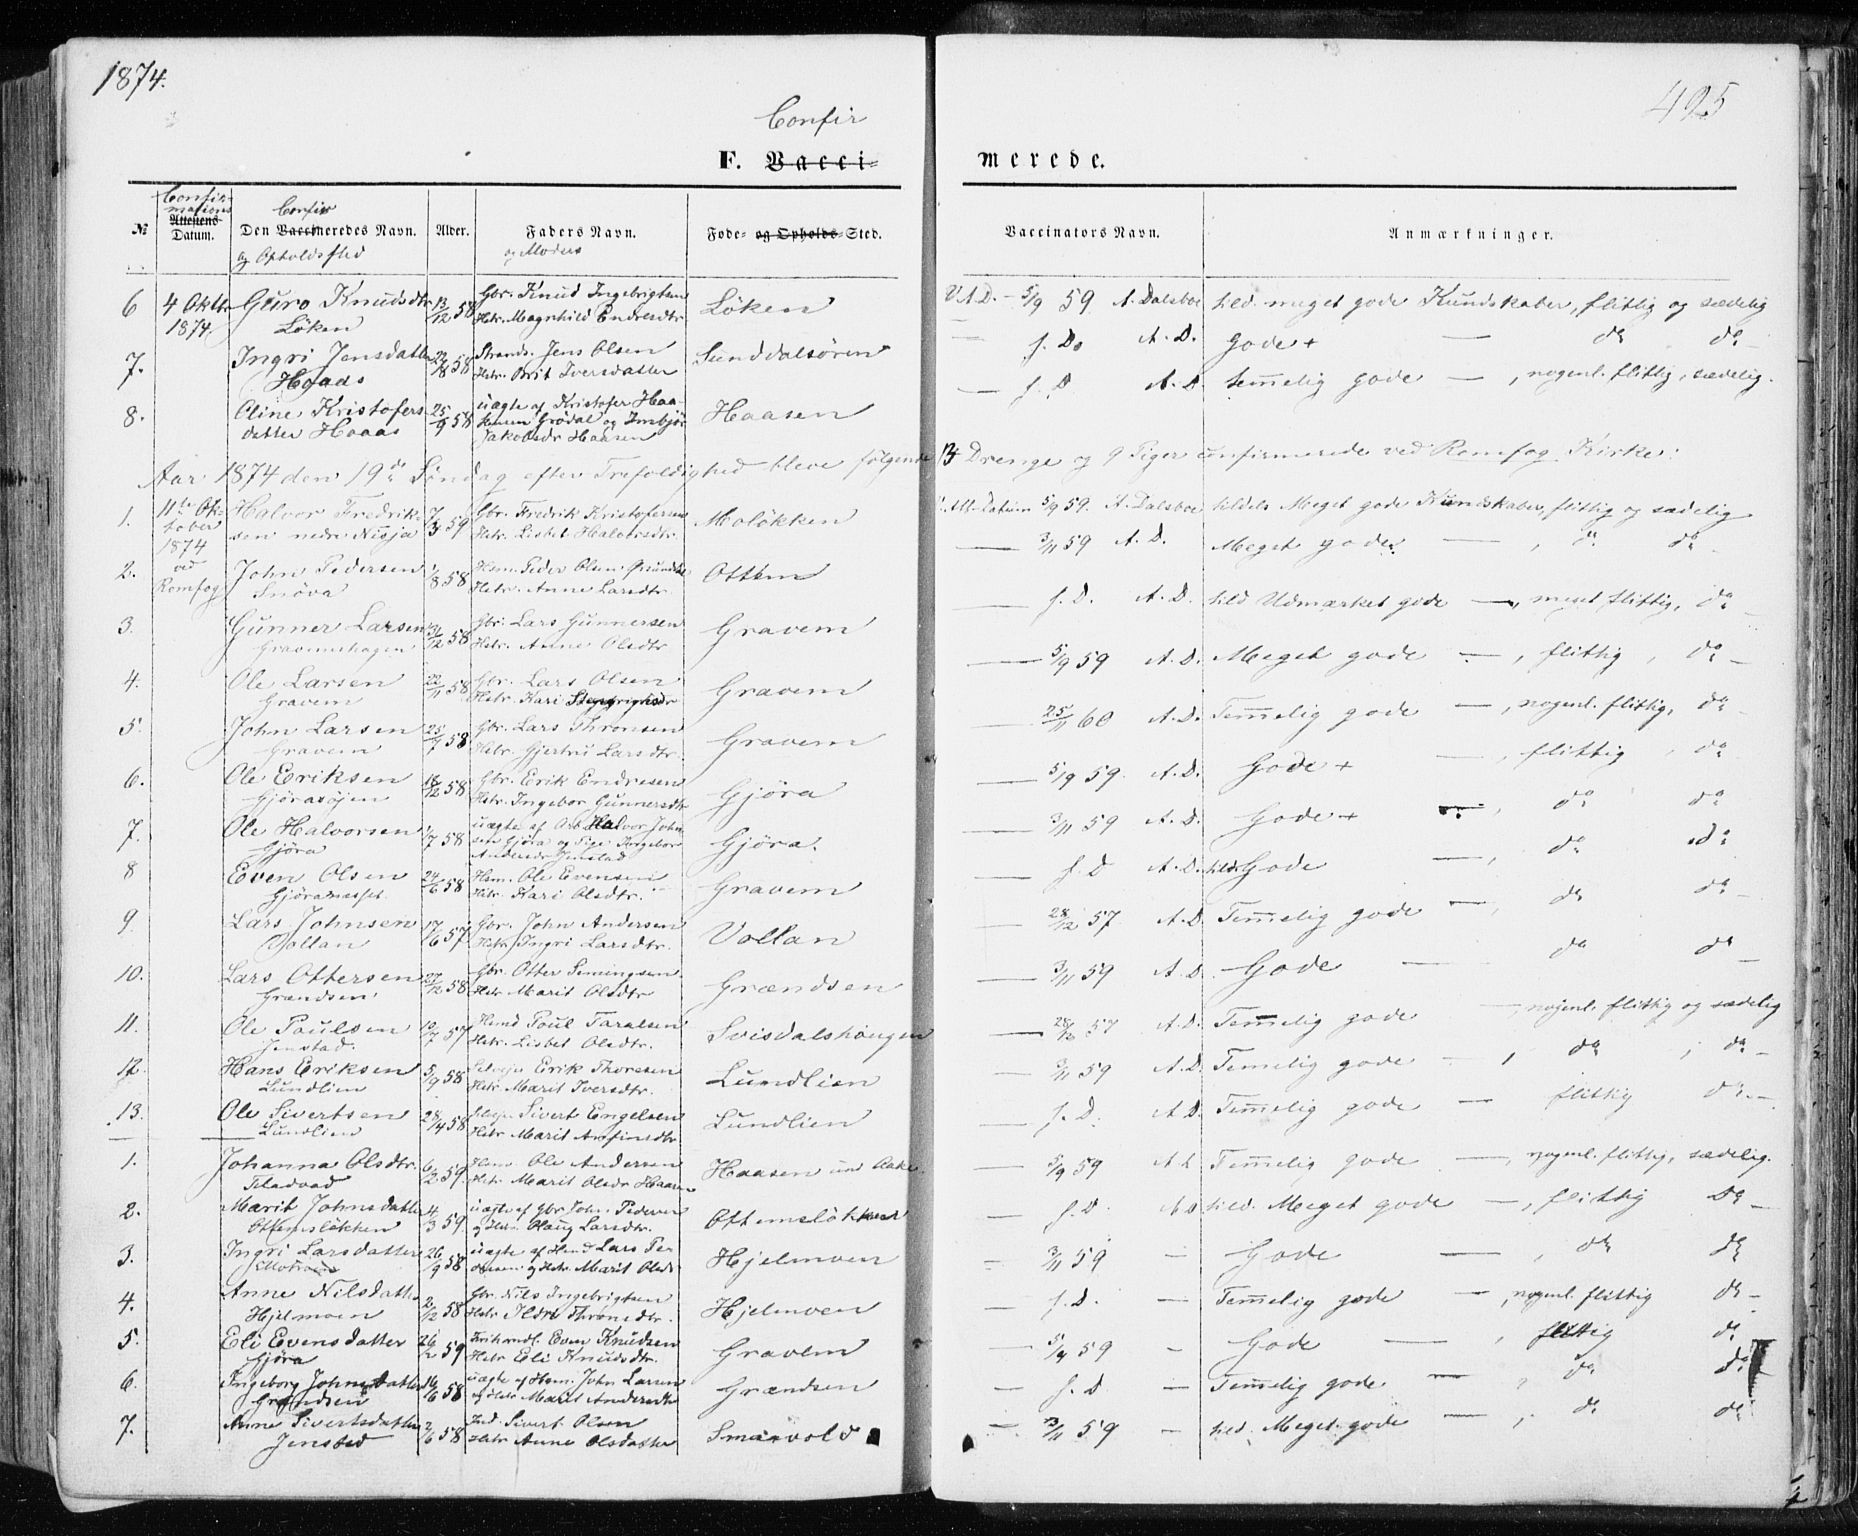 1874.
495
Confir
F. Vacci-
merede.
Confir-
mations
Attestens
Confir
№ Datum. Den Vaccineredes Navn. Alder. Faders Navn. Føde- og Opholds-Sted. Vaccinators Navn. Anmærkninger.
og Opholdssted og Moders
6 4 Oktbr Guro Knudsdtr 13/12 58 Gbr. Knud Ingebrigtsen Løken V.A.D. - 5/9 59 A. Dalsboe tild. meget gode Kundskaber, flittig og sædelig
1874. Løken Hstr. Magnhild Endresdtr
7. Ingri Jensdatter 22/8 58 Strands. Jens Olsen Sunddalsøren — f. Do A. D. Gode + — do do
Hoaas Hstr. Brit Iversdatter
8. Oline Kristofers 25/9 58 uægte af Kristofer Haa- Haasen — f. D A. D. temelig gode — , nogenl. flittig, sædelig.
datter Hoaas Grødal og
Jakobsdr Haasen
Aar 1874 den 19de Søndag efter Trefoldighed bleve følgende 13 Drenge og 9 Piger confirmerede ved Romfog Kirke:
1. 11te Ok- Halvor Fredrik- 7/3 59 Gbr. Fredrik Kristofersen Moløkken 5/9 59. A. Dalsboe tildels Meget gode Kundskaber, flittig og sædelig
tober sen nedre Nisja Hstr. Lisbet Halvorsdtr.
1874
2. ved John Pedersen 1/8 58 Hsm. Peder Olsen Ottem — 3/11 59 A. D. Meget gode — , do do
Romfog Snøva Hstr. Anne Larsdtr.
3. Gunner Larsen 31/12 58 Gbr. Lars Gunnersen Gravem — f. D. A. D. tild Udmærket gode — , meget flittig, do
Gravemshagen Hstr. Anne Olsdtr
4. Ole Larsen 22/11 58 Gbr. Lars Olsen Gravem — 5/9 59 A. D. Meget gode — , flittig , do
Gravem Hstr. Kari
5. John Larsen 25/7 58 Gbr. Lars Thronsen Gravem — 25/11 60 A. D. Temmelig gode — , nogenl. flittig, do
Gravem Hstr. Gjertru Larsdtr.
6. Ole Eriksen 18/12 58 Gbr. Erik Endresen Gjøra — 5/9 59. A. D. Gode + — , flittig , do
Gjøraøjen Hstr. Ingebor Gunnersdtr
7. Ole Halvorsen 1/7 58 uægte af Arb Halvor John- Gjøra. — 3/11 59 A. D. Gode + — , do do
Gjøra sen Gjøra og Pige Ingebor
Andersdr Jenstad
8 Even Olsen 24/6 58 Hsm. Ole Evensen Gravem — f. D A. D. tild. Gode — , do do
Gjøranesset. Hstr. Kari Olsdtr.
9 Lars Johnsen 17/6 57 Gbr. John Andersen Vollan — 28/12 57 A. D. Temmelig gode — , do do
Vollan Hstr Ingri Larsdtr.
10. Lars Ottersen 27/12 58 Gbr. Otter Simingsen Grændsen — 3/11 59 A. D. Gode — do do
Grændsen. Hstr Marit Olsdtr
11. Ole Paulsen 10/7 57 Hsmd Poul Taralsen Svisdalshaugen — 28/12 57 A. D. Temmelig gode — , nogenl. flittig og sædelig
Jenstad. Hstr. Lisbet Olsdtr.
12. Hans Eriksen 5/9 58 Selvejer Erik Thoresen Lundlien — 3/11 59 A. D. Temmelig gode — , do , do
Lundlien Hstr. Marit Iversdtr.
13. Ole Sivertsen 28/4 58 Selvejer Sivert Engelsen Lundlien — f. D. A. D. Temmelig gode — flittig do
Lundlien Hstr Marit Arnfinsdtr
1. Johanna Olsdtr. 6/2 59. Hsm. Ole Andersen Haasen — 5/9 59 A. D. Temmelig gode — , nogenl. flittig, sædelig.
Fladvad Hstr Marit Olsdr Haasen
2. Marit Johnsdatter 4/3 59 uægte af Gbr John Pedersen Ottemsløkken — f. D. A. D. tild. Meget gode — , flittig Do
Ottemsløkken og Hstr. Olaug Larsdtr.
3. Ingri Larsdatter 26/9 58 uægte af Hsmd Lars Pe- Hjelmoen 3/11 59 — Gode — , do do
og Hstr Marit Olsdr
4. Anne Nilsdatter 2/12 58 Gbr. Nils Ingebrigtsen Hjelmoen — f. D. — Temmelig gode — , nogenl. flittig do
Hjelmoen Hstr Ildri Thronsdtr.
5. Eli Evensdatter 26/2 59 Even Knudsen Gravem — 5/9 59 — Gode — , flittig do
Gjøra Hstr Eli Knudsdtr.
6. Ingeborg Johnsdatter 16/6 58 uægte af Hsm. John Larsen Grændsen — f. D. — Temmelig gode — , do do
Grændsen og Hstr Marit Andersdtr
7. Anne Sivertsdatter 2/6 58 Ind. Sivert Olsen Smisvold — 3/11 59 — tild. Meget gode — , do do
Jenstad Hstr Anne Olsdatter